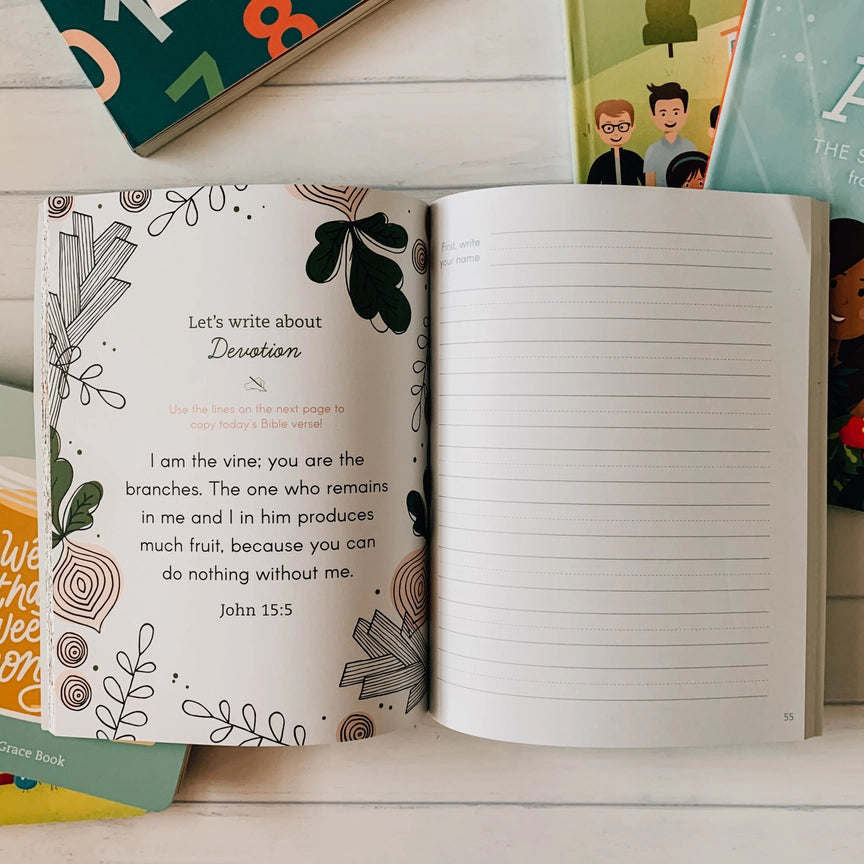 1
0
8
7
A
THE S
fro
Let's write about
Devotion
Use the lines on the next page to
copy today's Bible verse!
I am the vine; you are the
branches. The one who remains
in me and I in him produces
much fruit, because you can
do nothing without me.
John 15:5
First, write
your name
55
We
tha
wee
Grace Book